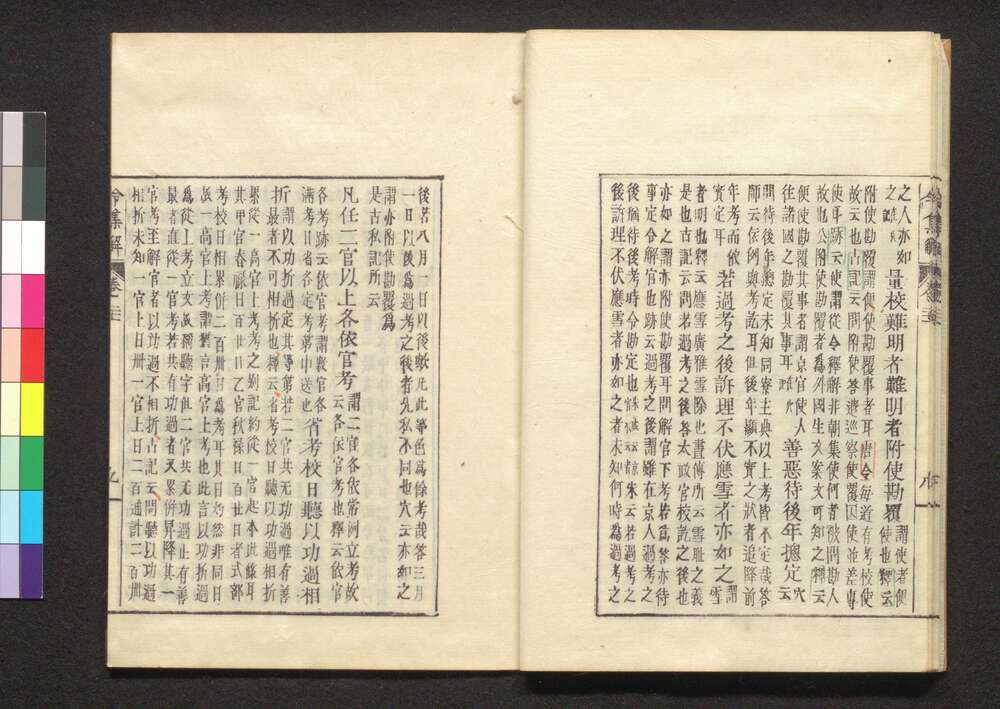 之人亦如
之
量校難明者難明者附使勘覆
謂使者便
使也釋云
附使勘覆謂便使勘覆事者耳唐令毎道有考校使
故云也古記云問附使答遣巡察使覆囚使並差專
使耳跡云使謂從令釋解非朝集使何者被問勘人
故也公附使勘覆者爲外國生文案文可知之釋云
便使勘覆其事者謂京官使人
往諸國之勘覆其事耳
善惡待後年摠定
穴云
問待後年總定未知同寮主典以上考皆不定哉答
師云依例與考訖耳但後年顯不實之狀者追降前
年考而依
實定耳
若過考之後訴理不伏應雪者亦如之
謂雪
者明也釋云應雪廣雅雪除也晝傳所云雪耻之義
是也古記云問若過考之後答太政官校訖之後也
亦如之謂亦附使勘覆耳問解官下考若爲答亦待
事定令解官也跡云過考之後謂雖在京人過考之
後猶待後考時令勘定也朱云若過考之
後訴理不伏應雪者亦如之者未知何時爲過考之
後若八月一日以後歟凡此等色爲餘考哉答三月
一日以後爲過考之後者先私不同也穴云亦如之
謂亦附使勘覆爲
是古私記所云
凡任二官以上各依官考
謂二官各依常例立考故
云各依官考也釋云依官
各考跡云依官考謂數官各
滿考日者省各定考等申送也
省考校日聽以功過相
折
謂以功折過定其等第若二官共无功過唯有善
最者不可相折也釋云省考校日聽以功過相折
累從一高官上考考之別記約從一官起本此條耳
其甲官春祿日百廿日乙官秋祿日百廿日者式部
考校日相累併二百卌日爲考耳其日灼然非同日
故一高官上考謂猶言高官上考也此言以功折過
爲從上考立文故稱聽字但二官共无功過止有善
最者直從一官考若共有功過者又累併昇降其一
官考至解官者以功過不相折古記云問聽以功過
相折未知一官上日卌一官上日二百通計二百卌
令集解
卷十三
九